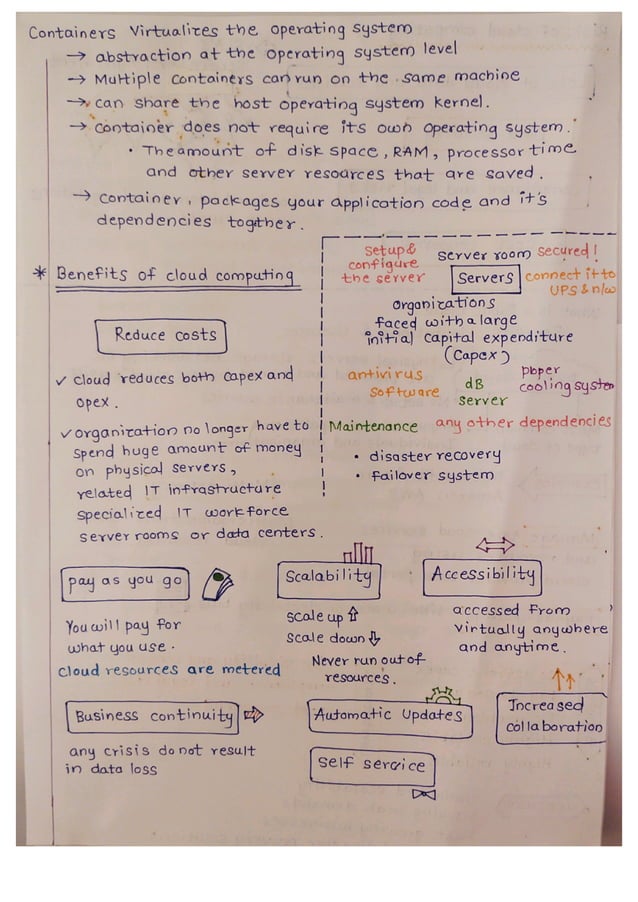 Containers Virtualizes the operating system
→ abstraction at the operating system level
→ Multiple containers can run on the same machine
→ can share the host operating system kernel.
→ container does not require its own operating system.
• The amount of disk space, RAM, processor time
and other server resources that are saved.
→ container, packages your application code and it's
dependencies together.
* Benefits of cloud computing
Reduce costs
✓ cloud reduces both capex and
opex.
✓ organization no longer have to
spend huge amount of money
on physical servers,
related IT infrastructure
specialized IT workforce
server rooms or data centers.
setup &
configure
the server
server room
secured!
Servers
connect it to
UPS & n/w
organizations
faced with a large
initial capital expenditure
(Capex)
antivirus
software
dB
server
proper
cooling system
Maintenance
any other dependencies
• disaster recovery
• failover system
pay as you go
You will pay for
what you use.
cloud resources are metered
Scalability
scale up ⇑
scale down ⇓
Never run out of
resources.
Accessibility
accessed from
virtually anywhere
and anytime.
Business continuity
any crisis do not result
in data loss
Automatic Updates
Self service
Increased
collaboration